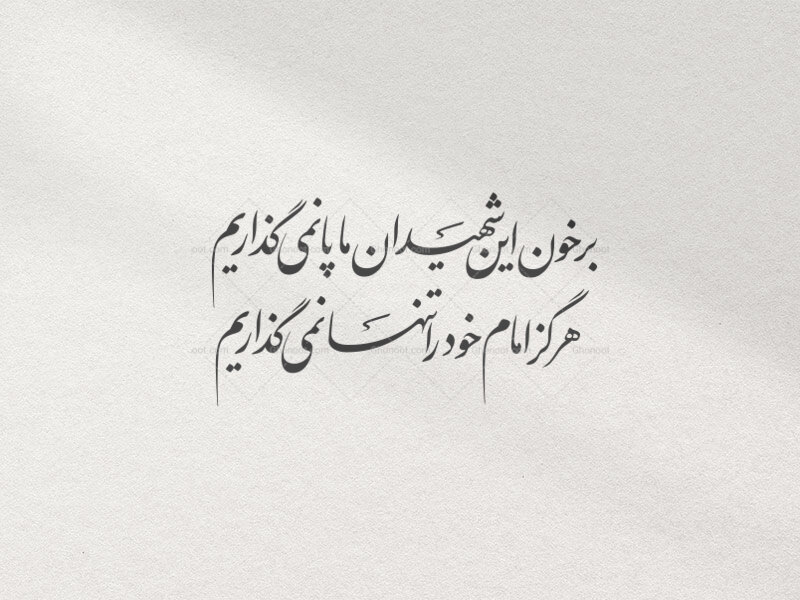 بر خون این شهیدان ما پا نمی گذاریم
هرگز امام خود را تنها نمی گذاریم